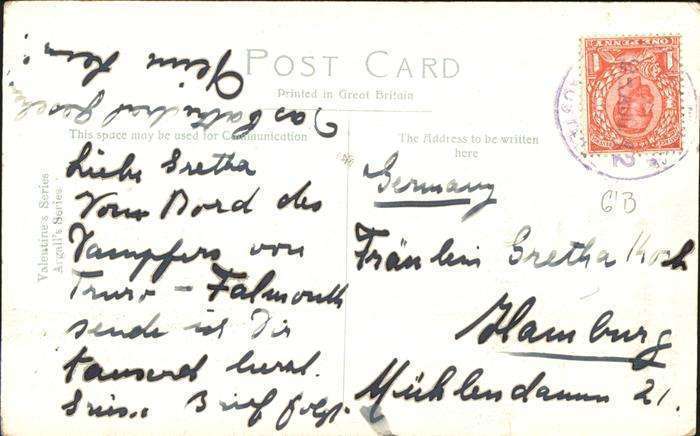 POST CARD
Printed in Great Britain
This space may be used for Communication
The Address to be written
here
Valentine's Series
Argall's Series
Liebe Gretha
Vom Bord des
Dampfers von
Truro - Falmouth
sende ich Dir
tausend herzl.
Brief folgt.
Dein
Das
Germany
Fräulein Gretha Koch
Hamburg
Mühlendamm 21.
GB
ONE ANNA
1